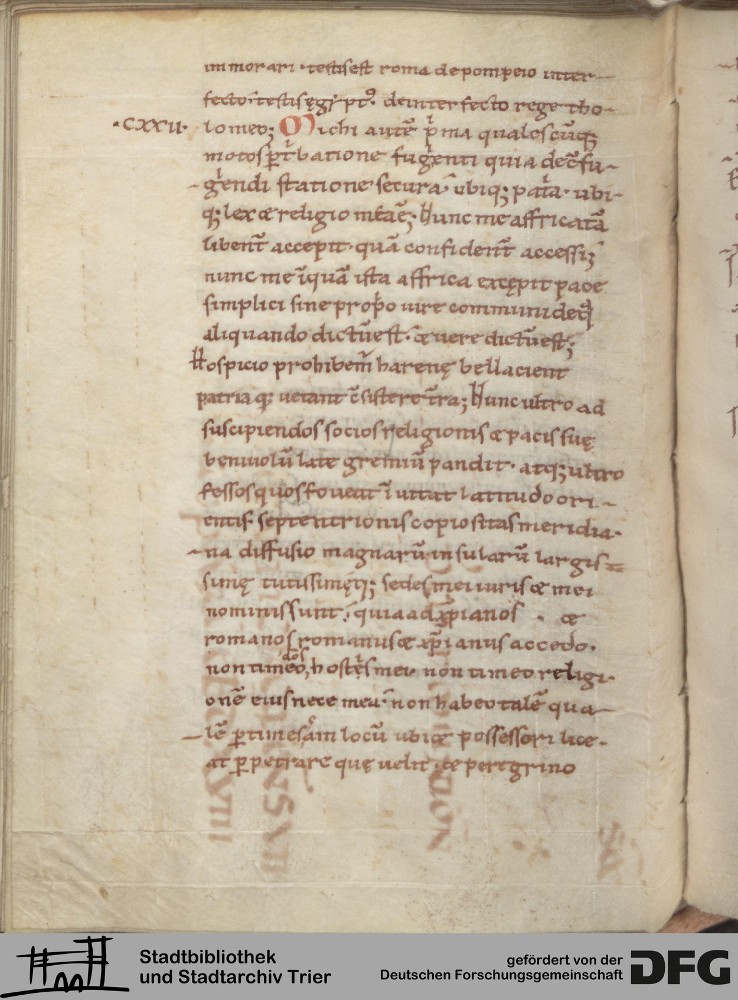 immorari · testis est roma de pompeio inter-
fecto · testis ęgiptꝰ · de interfecto rege tho-
·CXXII· lomeo; Michi autē pͥma qualescūq;
motos ꝑtͬbatione fugͥenti quia de cͦfu-
gͥendi statione securͣ · ubiq; patͥa · ubi-
q; lex & religio mea ē; Hunc me affricatā
libent̄ accepit · quā confident̄ accessi;
nunc me īquā ista affrica excępit pace
simplici sine propͥo iure communi de q̄
aliquando dictū est · & uere dictū est;
Hospicio prohibem̄ harenę bella cient
patriaq; uetant cͦsistere tͬra; Hunc ultro ad
suscipiendos socios religionis & pacis suę
beniuolū late gremiū pandit · atq; ultro
fessos quos foueat īuitat latitudo ori-
entis septentrionis copiositas meridia-
na diffusio magnarū insularū largis-
simę tutissimęq; sedes mei iuris & mei
nominis sunt · quia ad xp̄ianos · &
romanos romanus & xp̄ianus accedo.
non timeo dos hospitis mei · non timeo religi-
onē eius nece meā · non habeo talē qua-
lē ꝑtimescām locū ubi & possessori lice-
at ꝑpetrare quę uelit · & peregrino
Stadtbibliothek
und Stadtarchiv Trier
gefördert von der
Deutschen Forschungsgemeinschaft
DFG